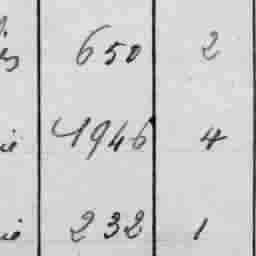 650 2
4946 4
232 1